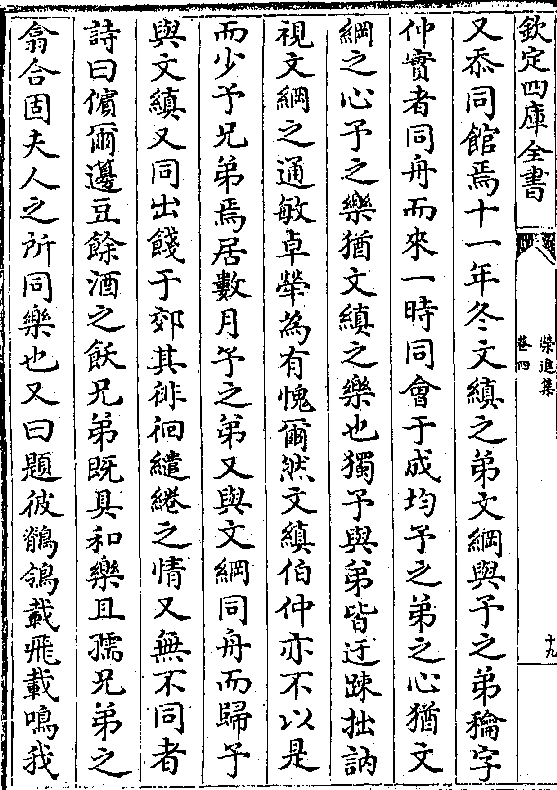 欽定四庫全書
榮進集
卷四
十九
又忝同館焉十一年冬文縝之弟文綱與予之弟穐字
仲實者同舟而來一時同會于成均予之弟之心猶文
綱之心予之樂猶文縝之樂也獨予與弟皆迂踈拙訥
視文綱之通敏卓犖為有愧爾然文縝伯仲亦不以是
而少予兄弟焉居數月予之弟又與文綱同舟而歸予
與文縝又同出餞于郊其徘徊繾綣之情又無不同者
詩曰儐爾籩豆餘酒之飫兄弟既具和樂且孺兄弟之
翕合固夫人之所同樂也又曰題彼鶺鴒載飛載鳴我